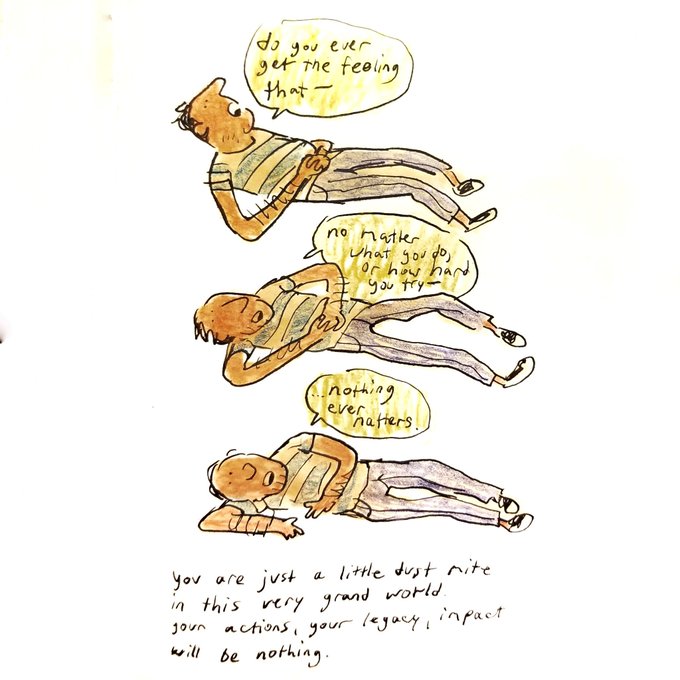 do you ever
get the feeling
that—
no matter
what you do,
or how hard
you try—
...nothing
ever
matters.
you are just a little dust mite
in this very grand world.
your actions, your legacy, impact
will be nothing.